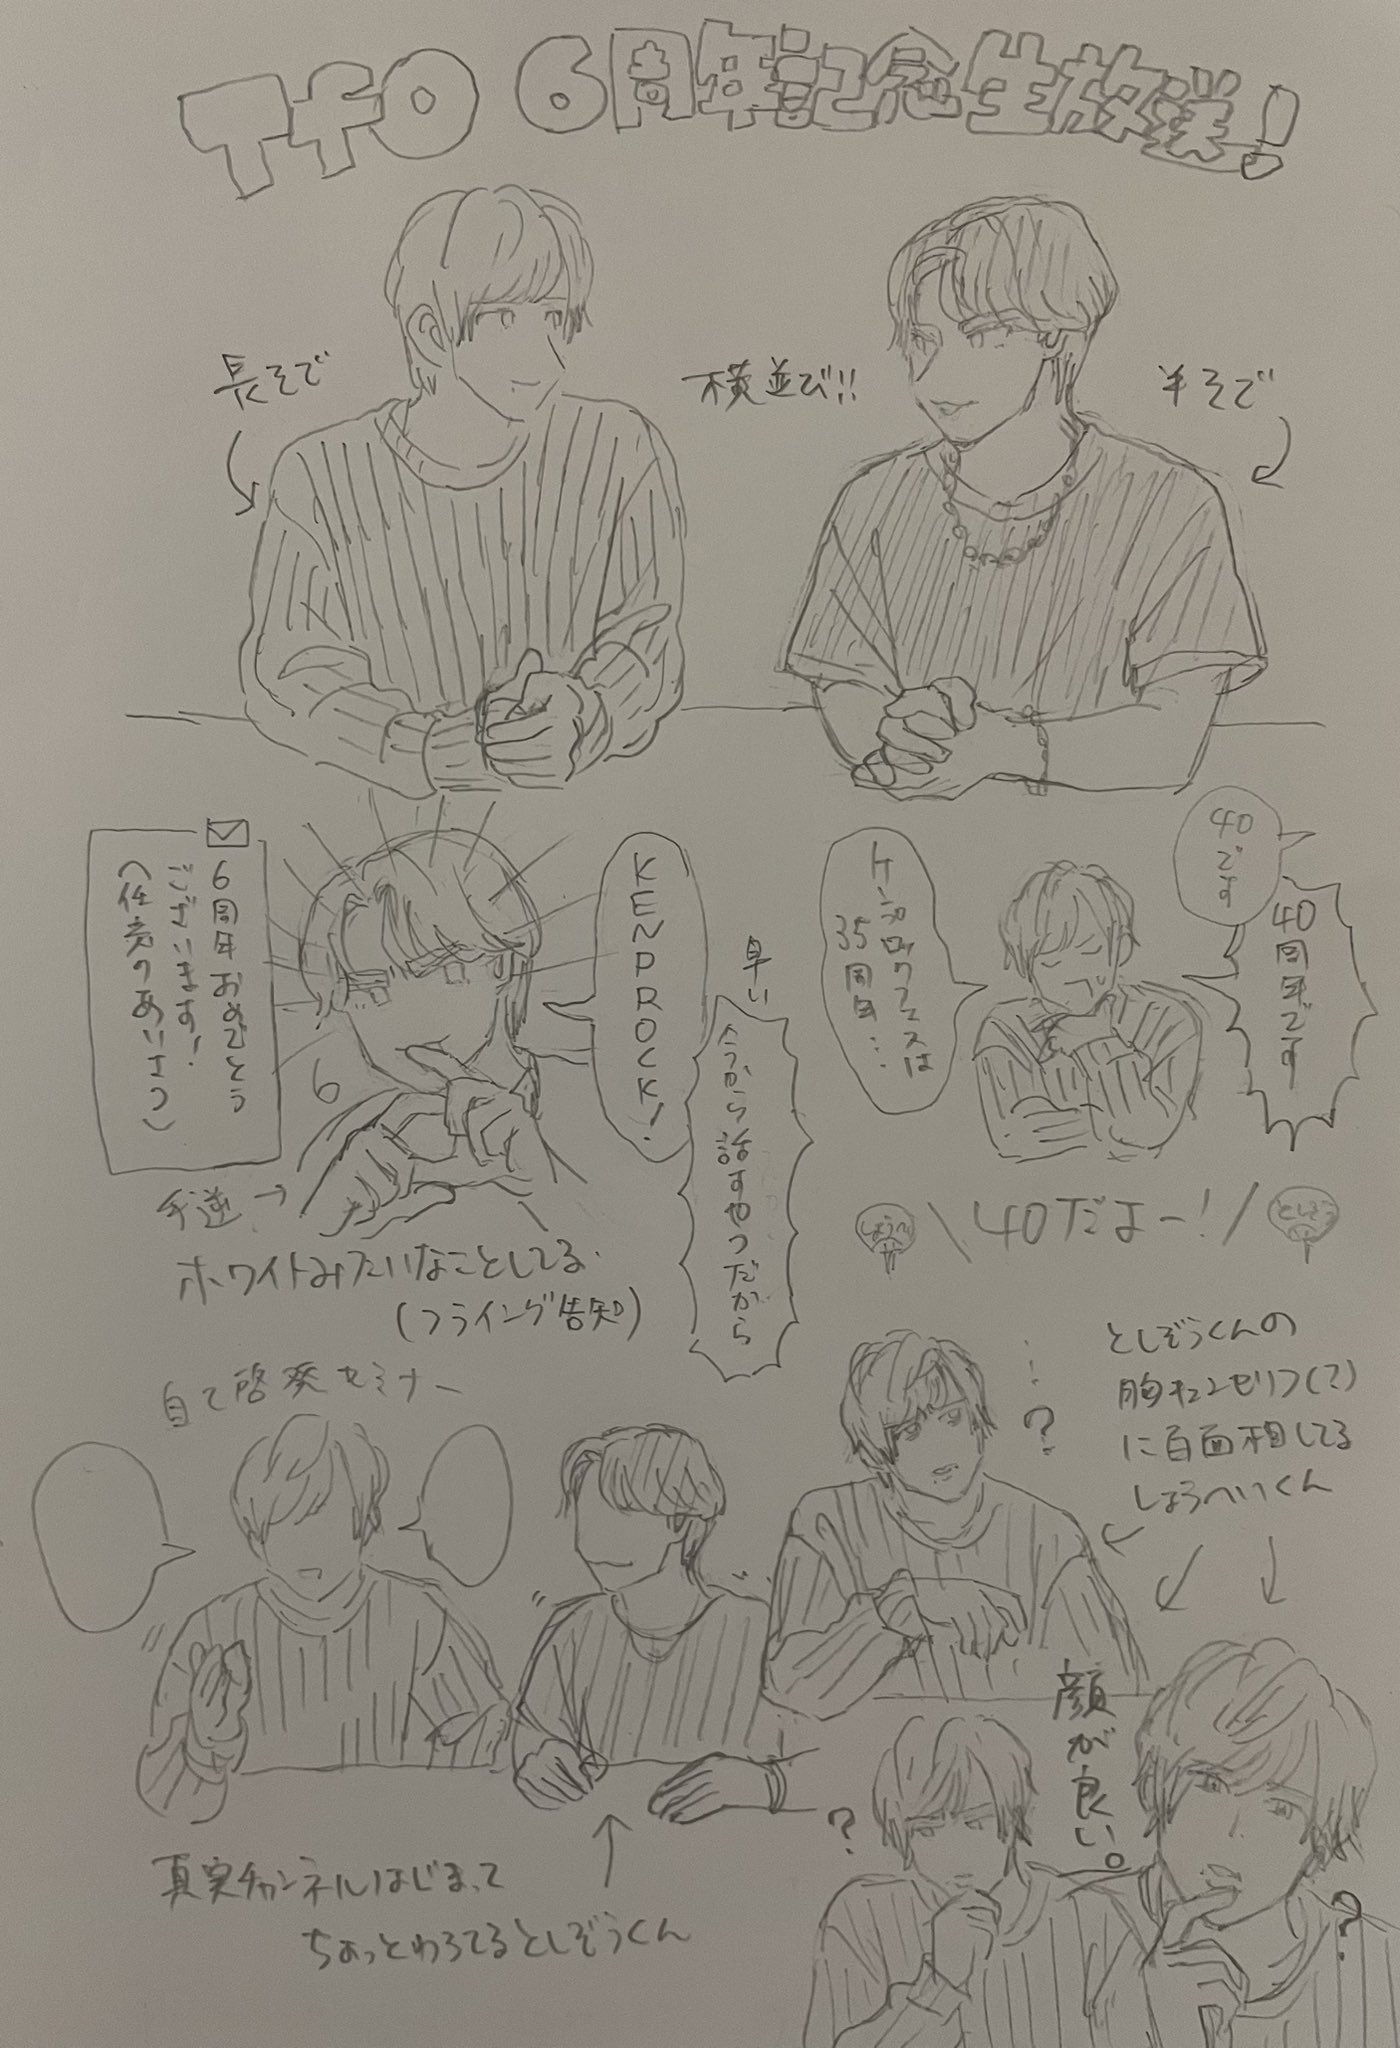 TfO 6周年記念生放送!
長そで
横並び!!
半そで
6周年おめでとう
ございます!
(任売りあいさつ)
KENPROCK!
早い
今から話すやつだから
ケンプロックフェスは
35周年…
40です
40周年です
6
手逆→
ホワイトみたいなことしてる
(フライング告知)
しょうへい
\40だよー!/
としぞう
自己啓発セミナー
…?
としぞうくんの
胸キュンセリフ(?)
に百面相してる
しょうへいくん
顔が良い。
?
?
真実チャンネルはじまって
ちょっとわろてるとしぞうくん